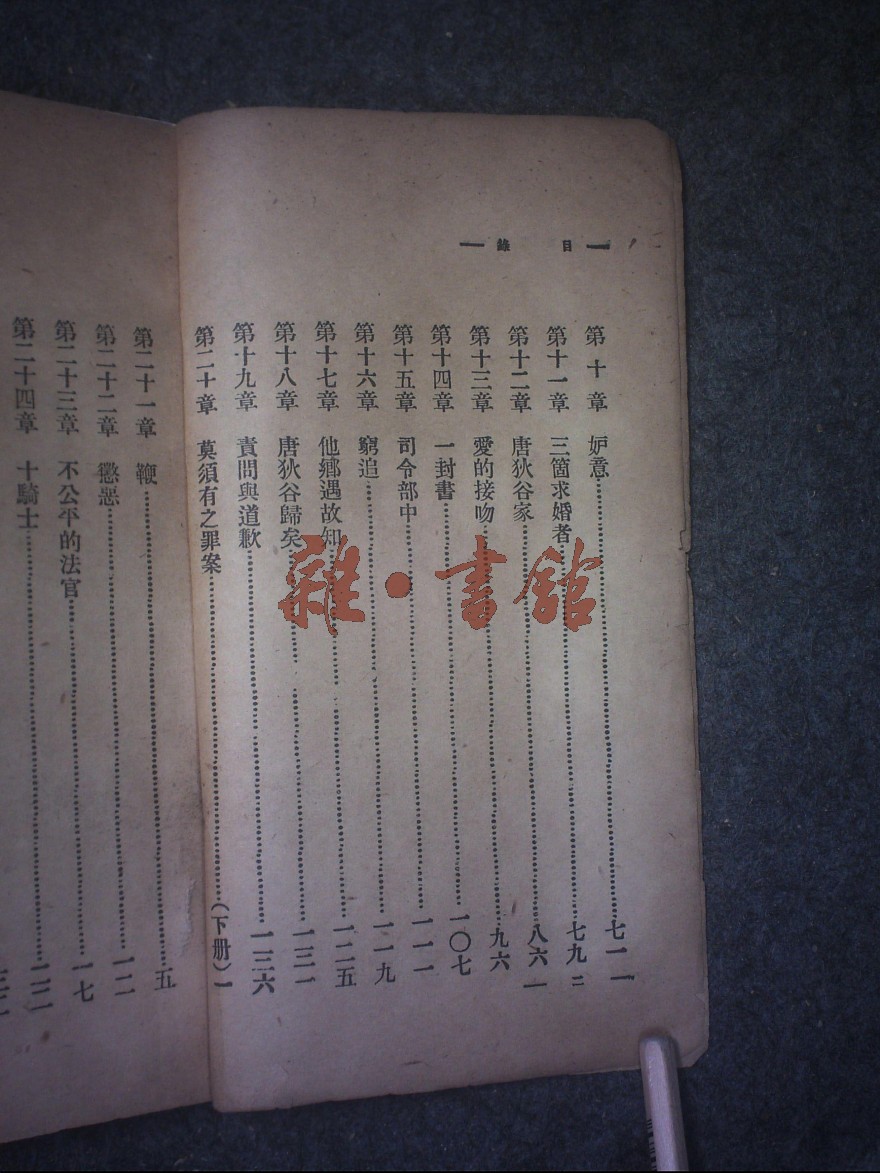 目錄
第十章 妒意 七一
第十一章 三箇求婚者 七九
第十二章 唐狄谷家 八六
第十三章 愛的接吻 九六
第十四章 一封書 一〇七
第十五章 司令部中 一一一
第十六章 窮追 一一九
第十七章 他鄉遇故知 一二五
第十八章 唐狄谷歸矣 一三一
第十九章 責問與道歉 一三六
第二十章 莫須有之罪案 (下册)一
第二十一章 鞭 五
第二十二章 懲惡
第二十三章 不公平的法官 一七
第二十四章 十騎士
雜·書館